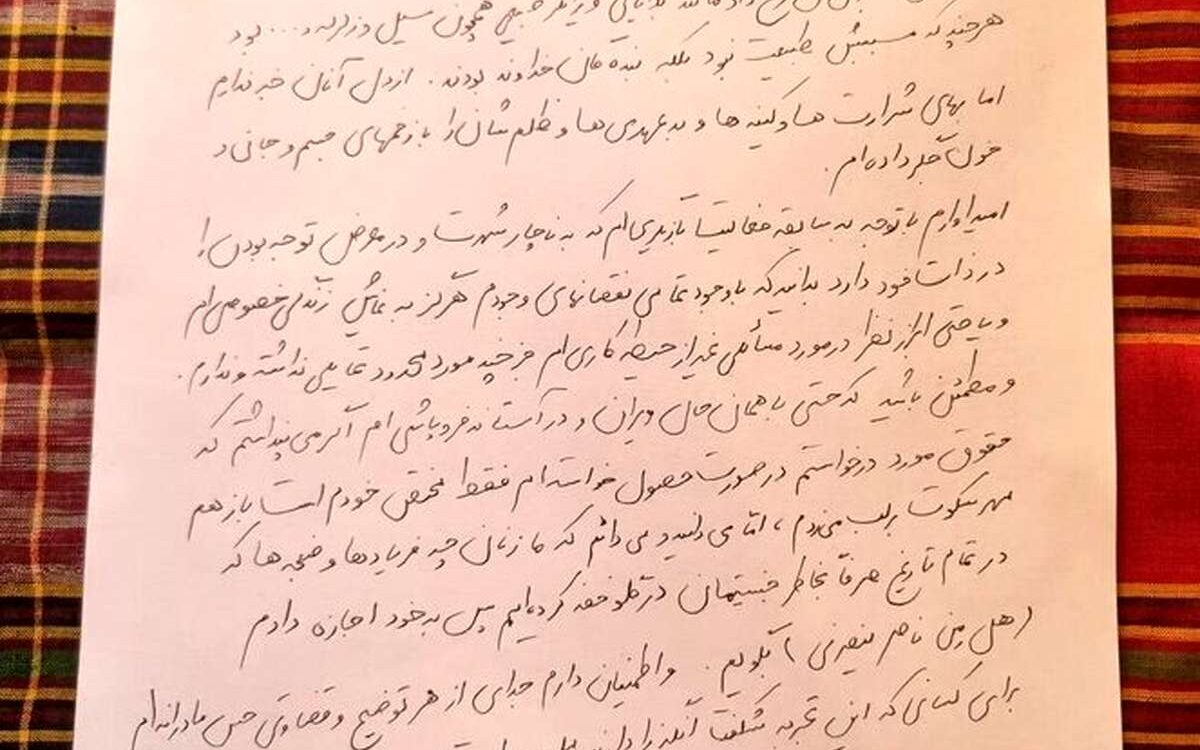 همچون سیل و زلزله و .... بود
هرچند که مسببش طبیعت نبود بلکه بنده‌گان خداوند بودند. از دل آنان خبر ندارم
اما بهای شرارت ها و کینه ها و بدعهدی ها و ظلم شان را با زخمهای جسم و جان و
خون جگر داده ام.
امیدوارم با توجه به سابقه فعالیت بازیگری ام که به ناچار شهرت و در معرض توجه بودن را
در ذات خود دارد بدانید که با وجود تمامی نقصانهای وجودم هرگز به نمایش زندگی خصوصی ام
و یا حتی ابراز نظر در مورد مسائلی غیر از حیطه کاری ام جز چند مورد محدود تمایلی نداشته و ندارم.
و مطمئن باشید که حتی با همان حال ویران و در آستانه فروپاشی ام اگر می پنداشتم که
حقوق مورد درخواستم در صورت حصول خواسته ام فقط مختص خودم است باز هم
مهر سکوت بر لب می زدم، اما می دانید و می دانم که ما زنان چه فریادها و ضجه ها که
در تمام تاریخ صرفا بخاطر جنسیتمان در گلو خفه کرده ایم پس به خود اجازه دادم
(هل من ناصر ینصرنی) بگویم. و اطمینان دارم جدای از هر توضیح و قضاوتی حس مادرانه ام
برای کسانی که این تجربه شگفت انگیز را